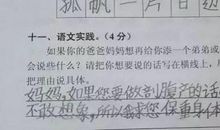 孤帆一片日边
十一、语文实践。(4分)
如果你的爸爸妈妈想再给你添一个弟弟或
会说些什么？请把你想要说的话写在横线上，
把理由说具体。
妈妈,如果您要做剖腹产的话
不敢想象,所以求您保重身体